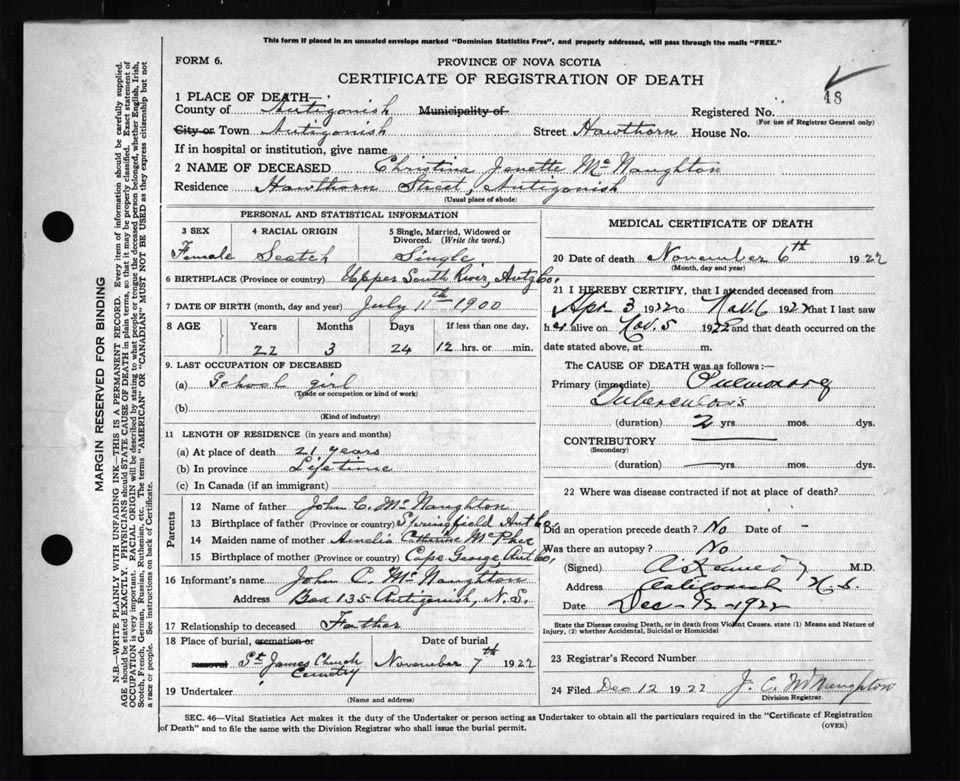 This form if placed in an unsealed envelope marked "Dominion Statistics Free", and properly addressed, will pass through the mails "FREE."
FORM 6.
PROVINCE OF NOVA SCOTIA
CERTIFICATE OF REGISTRATION OF DEATH
18
1 PLACE OF DEATH—
County of Antigonish Municipality of Registered No.
(For use of Registrar General only)
City or Town Antigonish Street Hawthorn House No.
If in hospital or institution, give name
2 NAME OF DECEASED Christina Janette McNaughton
Residence Hawthorn Street, Antigonish
(Usual place of abode)
PERSONAL AND STATISTICAL INFORMATION
3 SEX 4 RACIAL ORIGIN 5 Single, Married, Widowed or Divorced. (Write the word.)
Female Scotch Single
6 BIRTHPLACE (Province or country) Upper South River, Antg Co.
7 DATE OF BIRTH (month, day and year) July 11th 1900
8 AGE Years Months Days If less than one day,
22 3 24 12 hrs. or min.
9. LAST OCCUPATION OF DECEASED
(a) School girl
(Trade or occupation or kind of work)
(b)
(Kind of industry)
11 LENGTH OF RESIDENCE (in years and months)
(a) At place of death 21 years
(b) In province Lifetime
(c) In Canada (if an immigrant)
Parents
12 Name of father John C. McNaughton
13 Birthplace of father (Province or country) Springfield Ant Co.
14 Maiden name of mother Amelia Catherine McPhee
15 Birthplace of mother (Province or country) Cape George Ant Co.
16 Informant's name John C. McNaughton
Address Box 135 Antigonish, N.S.
17 Relationship to deceased Father
18 Place of burial, cremation or removal Date of burial
St James Church Cemetry November 7th 1922
19 Undertaker
(Name and address)
MEDICAL CERTIFICATE OF DEATH
20 Date of death November 6th 1922
(Month, day and year)
21 I HEREBY CERTIFY, that I attended deceased from
Apr 3 1922 to Nov. 6 1922 that I last saw
her alive on Nov. 5 1922 and that death occurred on the
date stated above, at m.
The CAUSE OF DEATH was as follows:—
Primary (immediate) Pulmonary
Tuberculosis
(duration) 2 yrs. mos. dys.
CONTRIBUTORY
(Secondary)
(duration) — yrs. mos. dys.
22 Where was disease contracted if not at place of death?
Did an operation precede death? No Date of -
Was there an autopsy? No
(Signed) M.D.
Address Antigonish N.S.
Date Dec-12-1922
State the Disease causing Death, or in death from Violent Causes, state (1) Means and Nature of Injury, (2) whether Accidental, Suicidal or Homicidal
23 Registrar's Record Number
24 Filed Dec 12 1922 J. C. McNaughton
Division Registrar.
SEC. 46—Vital Statistics Act makes it the duty of the Undertaker or person acting as Undertaker to obtain all the particulars required in the "Certificate of Registration
of Death" and to file the same with the Division Registrar who shall issue the burial permit.
(OVER)
MARGIN RESERVED FOR BINDING
N.B.—WRITE PLAINLY WITH UNFADING INK—THIS IS A PERMANENT RECORD. Every item of information should be carefully supplied.
AGE should be stated EXACTLY. PHYSICIANS should STATE CAUSE OF DEATH in plain terms, so that it may be properly classified. Exact statement of
OCCUPATION is very important. RACIAL ORIGIN will be described by stating to what people or tongue the deceased person belonged, whether English, Irish,
Scotch, French, German, Russian, Ruthenian, etc. The terms "AMERICAN" or "CANADIAN" MUST NOT BE USED as they express citizenship but not
a race or people. See instructions on back of Certificate.